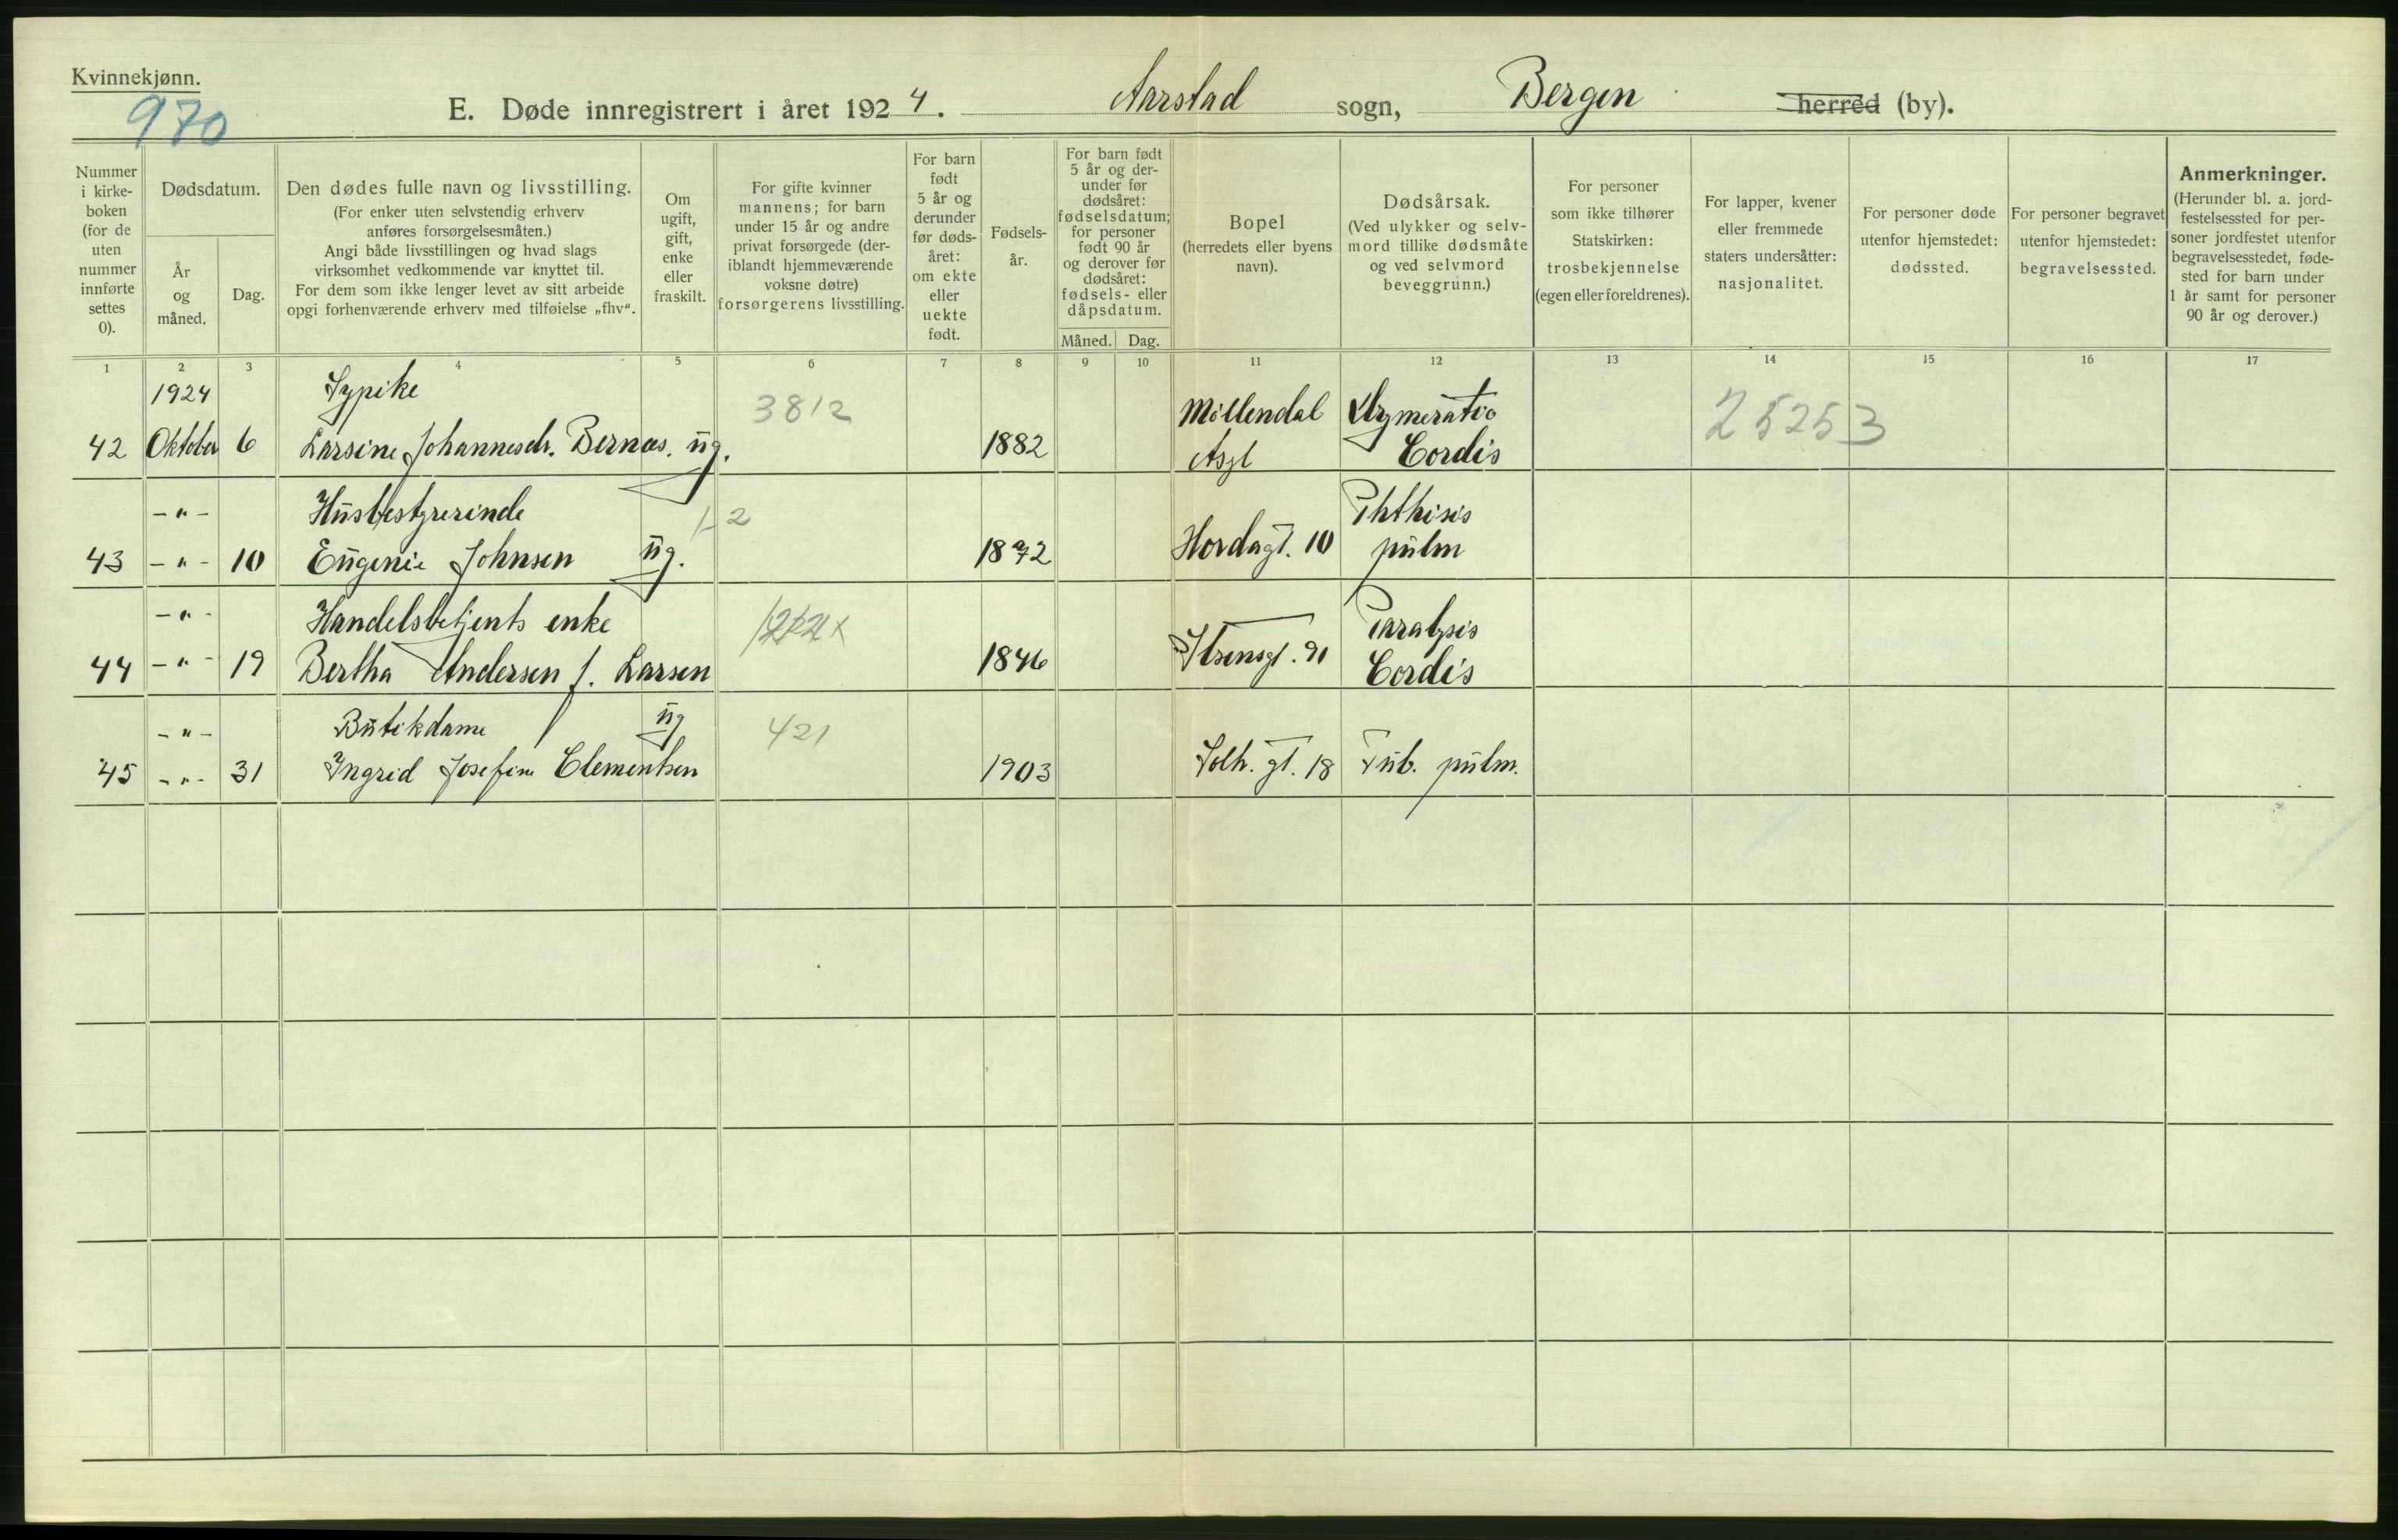 Kvinnekjønn.
970
E. Døde innregistrert i året 1924. Aarstad sogn, Bergen herred (by).
Nummer i kirkeboken (for de uten nummer innførte settes 0).
Dødsdatum.
År og måned.
Dag.
Den dødes fulle navn og livsstilling.
(For enker uten selvstendig erhverv
anføres forsørgelsesmåten.)
Angi både livsstillingen og hvad slags
virksomhet vedkommende var knyttet til.
For dem som ikke lenger levet av sitt arbeide
opgi forhenværende erhverv med tilføielse „fhv“.
Om
ugift,
gift,
enke
eller
fraskilt.
For gifte kvinner
mannens; for barn
under 15 år og andre
privat forsørgede (der-
iblandt hjemmeværende
voksne døtre)
forsørgerens livsstilling.
For barn
født
5 år og
derunder
før døds-
året:
om ekte
eller
uekte
født.
Fødsels-
år.
For barn født
5 år og der-
under før
dødsåret:
fødselsdatum;
for personer
født 90 år
og derover før
dødsåret:
fødsels- eller
dåpsdatum.
Måned. Dag.
Bopel
(herredets eller byens
navn).
Dødsårsak.
(Ved ulykker og selv-
mord tillike dødsmåte
og ved selvmord
beveggrunn.)
For personer
som ikke tilhører
Statskirken:
trosbekjennelse
(egen eller foreldrenes).
For lapper, kvener
eller fremmede
staters undersåtter:
nasjonalitet.
For personer døde
utenfor hjemstedet:
dødssted.
For personer begravet
utenfor hjemstedet:
begravelsessted.
Anmerkninger.
(Herunder bl. a. jord-
festelsessted for per-
soner jordfestet utenfor
begravelsesstedet, føde-
sted for barn under
1 år samt for personer
90 år og derover.)
1 2 3 4 5 6 7 8 9 10 11 12 13 14 15 16 17
1924 Sypike 3812 Möllendal 25253
42 Oktober 6 Larsine Johannesdr. Bernæs. ug. 1882 Asyl Cordis
-"- Husbestyrerinde 1-2 Phthisis
43 -"- 10 Eugenie Johnsen ug. 1872 Hordagt. 10 pulm
-"- Handelsbetjents enke Paralysis
44 -"- 19 Bertha Andersen f. Larsen 1846 Cordis
-"- Butikdame ug 421
45 -"- 31 Ingrid Josefine Clementsen 1903 Solh. gt. 18 Tub. pulm.